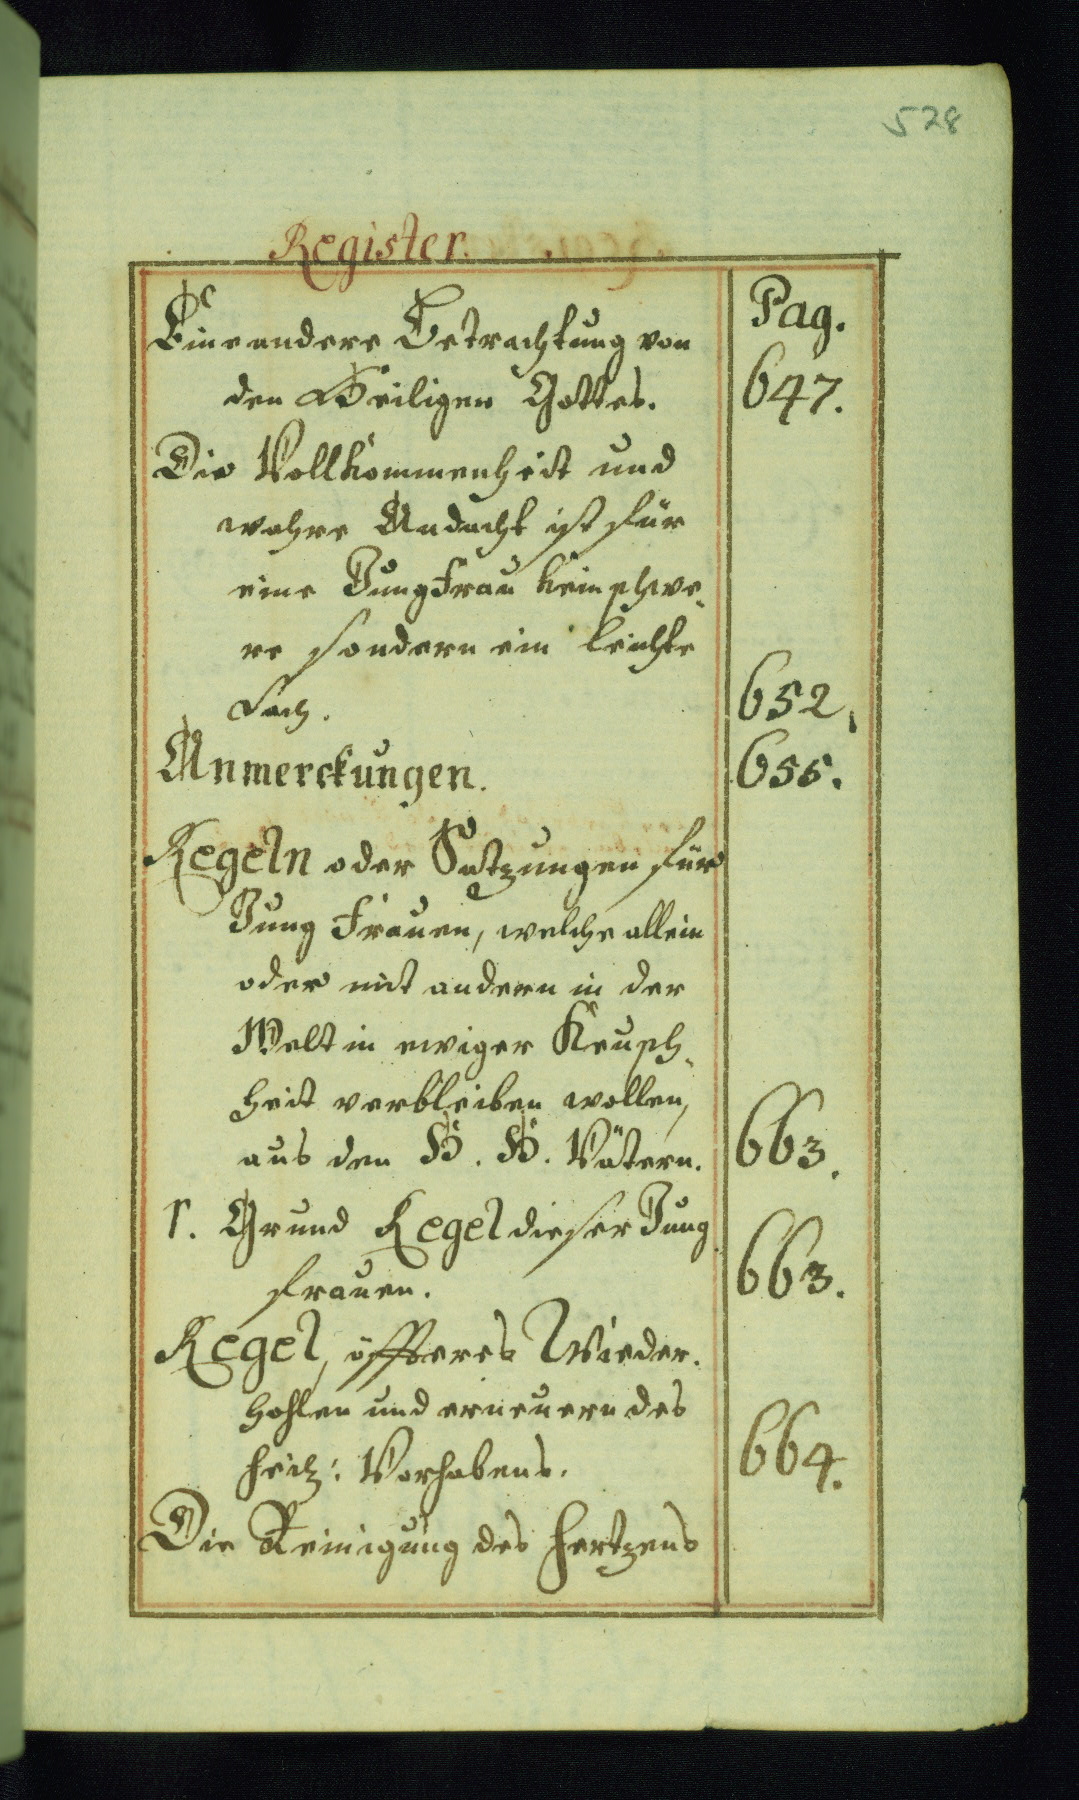 528
Register.
Pag.
Eine andere Betrachtung von
den Heiligen Gottes. 647.
Die Vollkommenheit und
wahre Andacht ist für
eine Jungfrau kein schwe-
re sondern ein leichte
Sach. 652.
Anmerckungen. 655.
Regeln oder Satzungen für
Jung Frauen, welche allein
oder mit andern in der
Welt in ewiger Keusch-
heit verbleiben wollen,
aus den H. H. Vätern. 663.
1. Grund Regel dieser Jung
frauen. 663.
Regel, öffteres Wieder-
hohlen und erneuern des
heil: Vorhabens. 664.
Die Reinigung des Hertzens